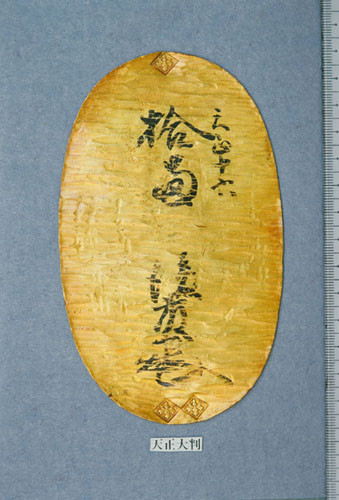 天正十六
拾両 後藤
天正大判